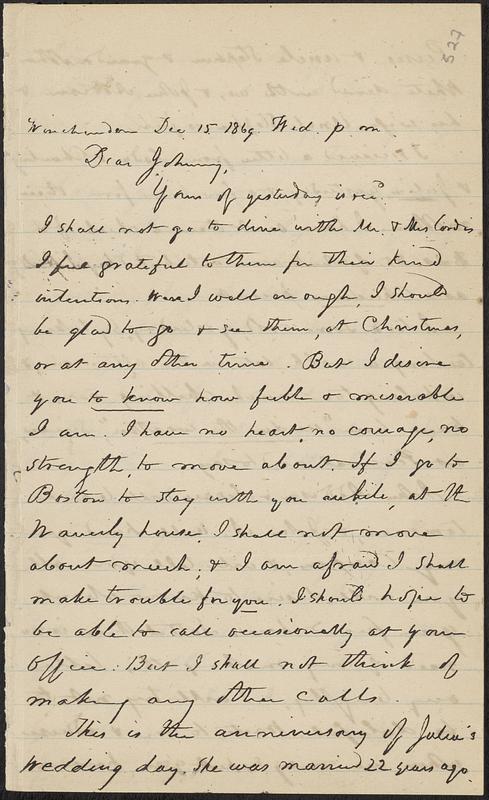 527
Winchendon Dec 15 1869. Wed. p m
Dear Johnny,
Yours of yesterday is rec'd.
I shall not go to dine with Mr. & Mrs Cordis
I feel grateful to them for their kind
intentions. Were I well enough, I should
be glad to go & see them, at Christmas,
or at any other time. But I desire
you to know how feeble & miserable
I am. I have no heart, no courage, no
strength, to move about. If I go to
Boston to stay with you awhile, at the
Waverly house, I shall not move
about much, & I am afraid I shall
make trouble for you. I should hope to
be able to call occasionally at your
office. But I shall not think of
making any other calls.
This is the anniversary of Julia's
wedding day. She was married 22 years ago.